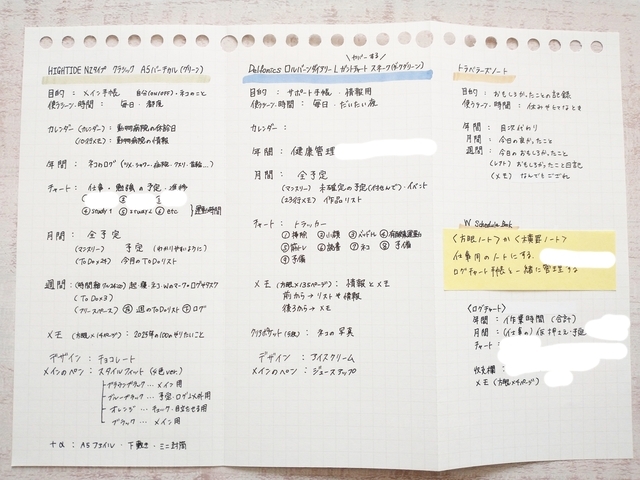 HIGHTIDE NZタイプ クラシック A5バーチカル(グリーン)
目的 : メイン手帳 自分(ON/OFF)・ネコのこと
使うシーン・時間 : 毎日・都度
カレンダー(カレンダー) : 動物病院の休診日
(MEMO) : 動物病院の情報
年間 : ネコログ
チャート : 仕事・勉強の予定・進捗
④study1 ⑤study2 ⑥etc. 運動時間
月間 : 全予定
(マンスリー) 予定 (わかりやすいように)
(ToDo×2) 今月のToDoリスト
週間 :
(ToDo×3)
(フリースペース) 週のToDoリスト ログ
メモ (方眼×14ページ) : 2025年の100のやりたいこと
デザイン : チョコレート
メインのペン : スタイルフィット (4色ver.)
ブラウンブラック … メイン用
ブルーブラック … 予定・ログ
オレンジ … チェック・目立たせる用
ブラック … メイン用
+α : A5ファイル・下敷き・ミニ封筒
カバーする
Delfonics ロルバーンダイアリー L ガントチャート スネーク(ダークグリーン)
目的 : サポート手帳・情報用
使うシーン・時間 : 毎日・だいたい夜
カレンダー :
年間 : 健康管理
月間 : 全予定
(マンスリー) 未確定の予定(付せんで)・イベント
作品リスト
チャート : トラッカー
①掃除 ②小顔 ③メッドル ④有酸素運動
⑤筋トレ ⑥読書 ⑦ネコ ⑧予備
⑨予備
メモ (方眼×135ページ) : 情報とメモ
前から→リストや情報
後ろから→メモ
クリアポケット(5枚) : ネコの写真
デザイン : アイスクリーム
メインのペン : ジュースアップ
トラベラーズノート
目的 : おもしろかったことの記録
使うシーン・時間 : 休みやひまなとき
年間 : 目次代わり
月間 : 今日の良かったこと
週間 : 今日のおもしろかったこと
(レフト) おもしろかったこと日記
(メモ) なんでもござれ
W Schedule Book
〈方眼ノート〉か〈横罫ノート〉
仕事用のノートにする。
ログチャート手帳と一緒に管理する
〈ログチャート〉
年間 : 作業時間 (合計)
月間 : (仕事の)
チャート :
収支欄
メモ (方眼×4ページ)